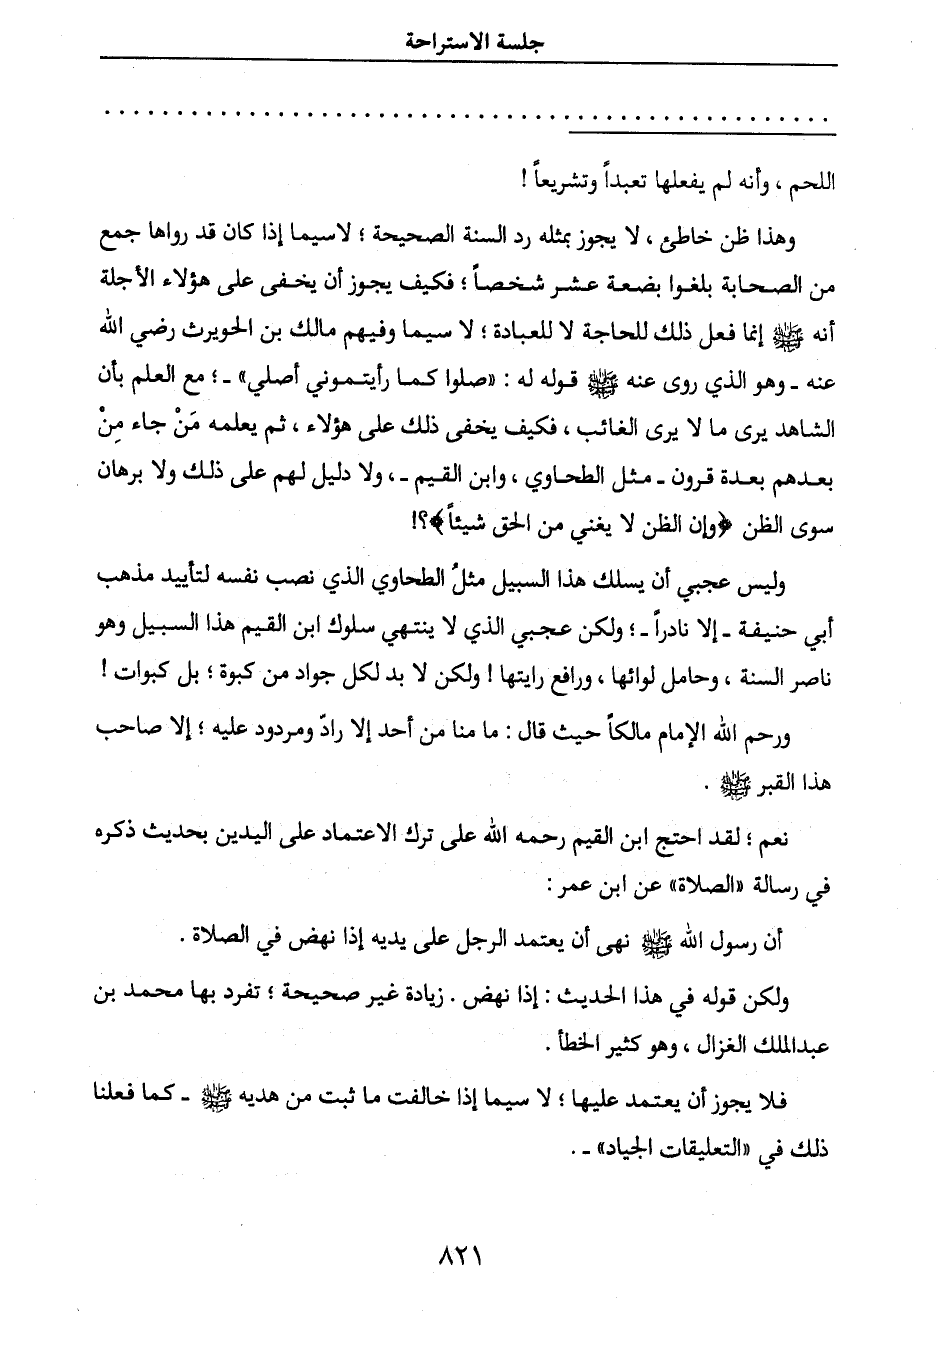 جلسة الاستراحة
. . . . . . . . . . . . . . . . . . . . . . . . . . . . . . . . . . . . . . . . . . . . . . . . . .
اللحم ، وأنه لم يفعلها تعبداً وتشريعاً !
وهذا ظن خاطئ ، لا يجوز بمثله رد السنة الصحيحة ؛ لاسيما إذا كان قد رواها جمع
من الصحابة بلغوا بضعة عشر شخصاً ؛ فكيف يجوز أن يخفى على هؤلاء الأجلة
أنه ﷺ إنما فعل ذلك للحاجة لا للعبادة ؛ لا سيما وفيهم مالك بن الحويرث رضي الله
عنه ـ وهو الذي روى عنه ﷺ قوله له : «صلوا كما رأيتموني أصلي» ـ ؛ مع العلم بأن
الشاهد يرى ما لا يرى الغائب ، فكيف يخفى ذلك على هؤلاء ، ثم يعلمه مَنْ جاء مِنْ
بعدهم بعدة قرون ـ مثل الطحاوي ، وابن القيم ـ ، ولا دليل لهم على ذلك ولا برهان
سوى الظن ﴿وإن الظن لا يغني من الحق شيئاً﴾؟!
وليس عجبي أن يسلك هذا السبيل مثلُ الطحاوي الذي نصب نفسه لتأييد مذهب
أبي حنيفة ـ إلا نادراً ـ ؛ ولكن عجبي الذي لا ينتهي سلوك ابن القيم هذا السبيل وهو
ناصر السنة ، وحامل لوائها ، ورافع رايتها ! ولكن لا بد لكل جواد من كبوة ؛ بل كبوات !
ورحم الله الإمام مالكاً حيث قال : ما منا من أحد إلا رادّ ومردود عليه ؛ إلا صاحب
هذا القبر ﷺ .
نعم ؛ لقد احتج ابن القيم رحمه الله على ترك الاعتماد على اليدين بحديث ذكره
في رسالة «الصلاة» عن ابن عمر :
أن رسول الله ﷺ نهى أن يعتمد الرجل على يديه إذا نهض في الصلاة .
ولكن قوله في هذا الحديث : إذا نهض . زيادة غير صحيحة ؛ تفرد بها محمد بن
عبدالملك الغزال ، وهو كثير الخطأ .
فلا يجوز أن يعتمد عليها ؛ لا سيما إذا خالفت ما ثبت من هديه ﷺ ـ كما فعلنا
ذلك في «التعليقات الجياد» ـ .
٨٢١